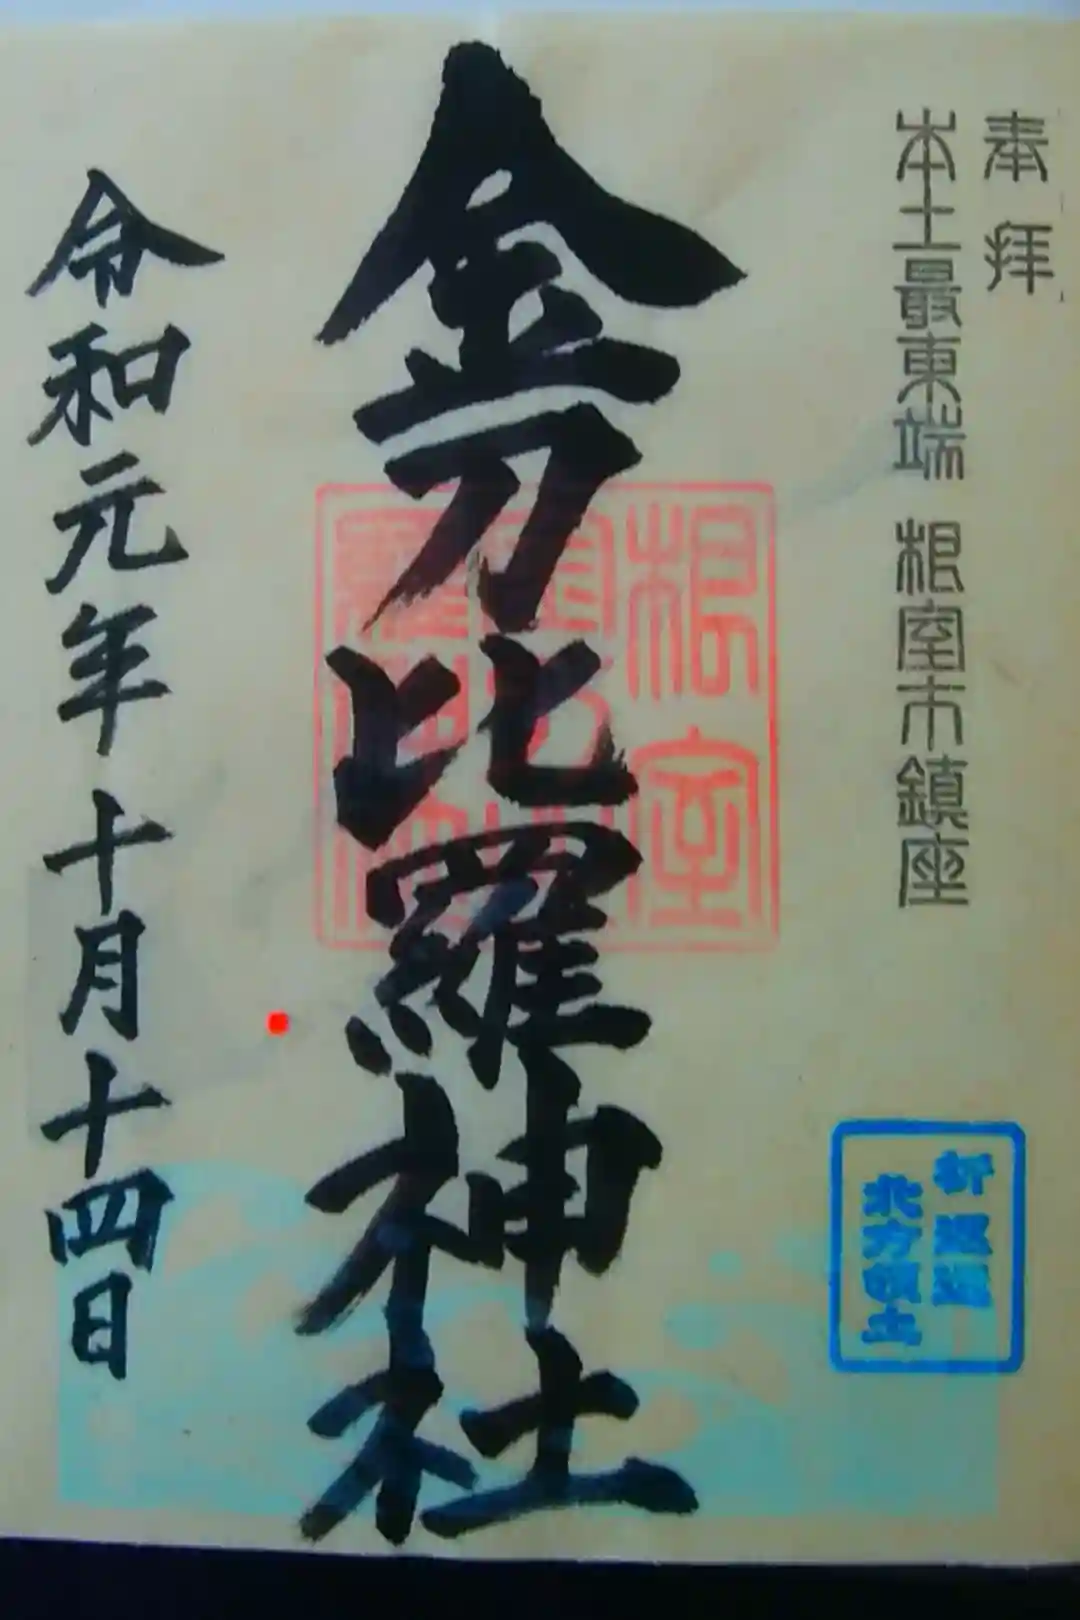 奉拝
本土最東端 根室市鎮座
金刀比羅神社
根室
令和元年十月十四日
祈返還
北方領土